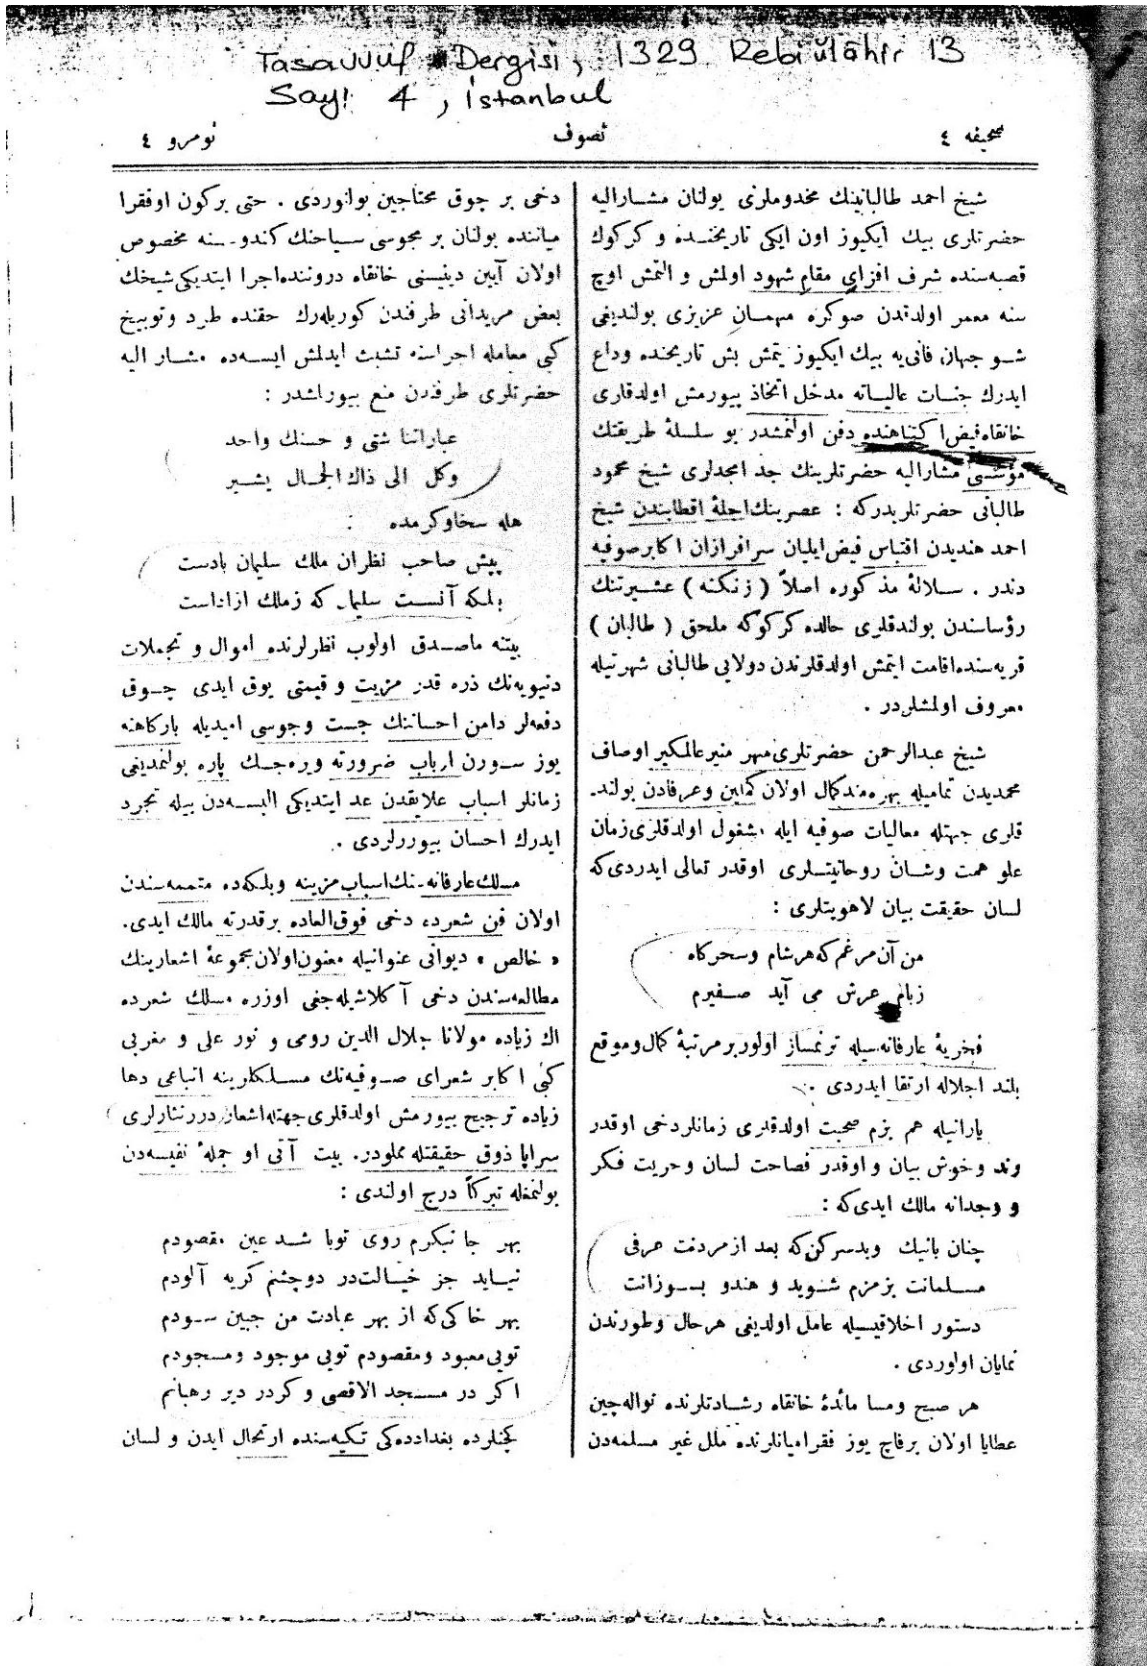 Tasavvuf Dergisi, 1329 Rebiülâhir 13
Sayı 4, İstanbul
صحیفه ٤
تصوف
نومرو ٤
شیخ احمد طالبانینك مخدوملری بولنان مشارالیه
حضرتلری بیك ایکیوز اون ایکی تاریخنده و کرکوك
قصبه‌سنده شرف افزای مقام شهود اولمش و التمش اوچ
سنه معمر اولدقدن صوکره میهمان عزیزی بولندیغی
شو جهان فانی‌یه بیك ایکیوز یتمش بش تاریخنده وداع
ایدرك جنات عالیاته مدخل اتخاذ بیورمش اولدقلری
خانقاه فیض اکتناهنده دفن اولنمشدر بو سلسلهٔ طریقتك
مؤسسی مشارالیه حضرتلرینك جد امجدلری شیخ محمود
طالبانی حضرتلریدرکه : عصرینك اجلهٔ اقطابندن شیخ
احمد هندیدن اقتباس فیض ایلیان سرافرازان اکابر صوفیه
دندر . سلالهٔ مذکوره اصلاً ( زنکنه ) عشیرتنك
رؤساسندن بولندقلری حالده کرکوکه ملحق ( طالبان )
قریه‌سنده اقامت ایتمش اولدقلرندن دولایی طالبانی شهرتیله
معروف اولمشلردر .
شیخ عبدالرحمن حضرتلری مهر منیر عالمکیر اوصاف
محمدیدن تمامیله بهره‌مند کمال اولان کملین و عرفادن بولند-
قلری جهتله معالیات صوفیه ایله مشغول اولدقلری زمان
علو همت وشان روحانیتلری اوقدر تعالی ایدردی که
لسان حقیقت بیان لاهوتیلری :
من آن مرغم که هر شام وسحرکاه
زبام عرش می آید صفیرم
فخریهٔ عارفانه‌سیله ترنمساز اولور بر مرتبهٔ کمال وموقع
بلند اجلاله ارتقا ایدردی .
یارانیله هم بزم صحبت اولدقلری زمانلر دخی اوقدر
وند وخوش بیان و اوقدر فصاحت لسان وحریت فکر
و وجدانه مالك ایدی که :
چنان بانیك وبد سرکن که بعد از مردنت عرفی
مسلمانت بزمزم شوید و هندو بسوزانت
دستور اخلاقیسیله عامل اولدیغی هر حال وطورندن
نمایان اولوردی .
هر صبح ومسا مائدهٔ خانقاه رشادتلرنده نواله‌چین
عطایا اولان برقاچ یوز فقرا میانلرنده ملل غیر مسلمه‌دن
دخی بر چوق محتاجین بولنوردی . حتی برکون اوفقرا
میاننده بولنان بر مجوسی سیاحنك کندوسنه مخصوص
اولان آیین دینیسنی خانقاه دروننده اجرا ایتدیکی شیخك
بعض مریدانی طرفندن کوریله‌رك حقنده طرد وتوبیخ
کبی معامله اجراسنه تشبث ایدلمش ایسه‌ده مشار الیه
حضرتلری طرفندن منع بیورلشدر :
عباراتنا شتی و حسنك واحد
وکل الی ذاك الجمال یشیر
هله سخاوکرمده :
پیش صاحب نظران ملك سلیمان بادست
بلکه آنست سلیمان که زملك ازاداست
بیتنه ماصدق اولوب نظرلرنده اموال و تجملات
دنیویه‌نك ذره قدر مزیت و قیمتی یوق ایدی چوق
دفعه‌لر دامن احساننك جست وجوسی امیدیله بارکاهنه
یوز سورن ارباب ضرورته ویره‌جك پاره بولنمدیغی
زمانلر اسباب علایقدن عد ایتدیکی البسه‌دن بیله تجرد
ایدرك احسان بیوررلردی .
مسلك عارفانه‌نك اسباب مزینه وبلکه‌ده متممه‌سندن
اولان فن شعرده دخی فوق العاده برقدرته مالك ایدی.
« خالص » دیوانی عنوانیله معنون اولان مجموعهٔ اشعارینك
مطالعه‌سندن دخی آکلاشیله‌جغی اوزره مسلك شعرده
اك زیاده مولانا جلال الدین رومی و نور علی و مغربی
کبی اکابر شعرای صوفیه‌نك مسلکلرینه اتباعی دها
زیاده ترجیح بیورمش اولدقلری جهتله اشعار دررنثارلری
سراپا ذوق حقیقتله مملودر. بیت آتی او جملهٔ نفیسه‌دن
بولنمغله تبرکاً درج اولندی :
بهر جا نبکرم روی توبا شد عین مقصودم
نیاید جز خیالت در دوچشم کریه آلودم
بهر خاکی که از بهر عبادت من جبین سودم
تویی معبود ومقصودم تویی موجود ومسجودم
اکر در مسجد الاقصی و کر در دیر رهبانم
کچنلرده بغداددەکی تکیه‌سنده ارتحال ایدن و لسان